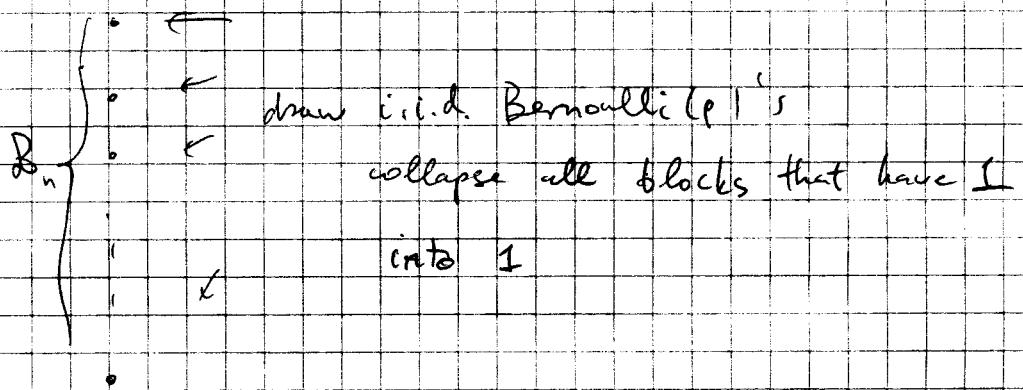 draw i.i.d. Bernoulli(p)'s
B_n
collapse all blocks that have 1
into 1